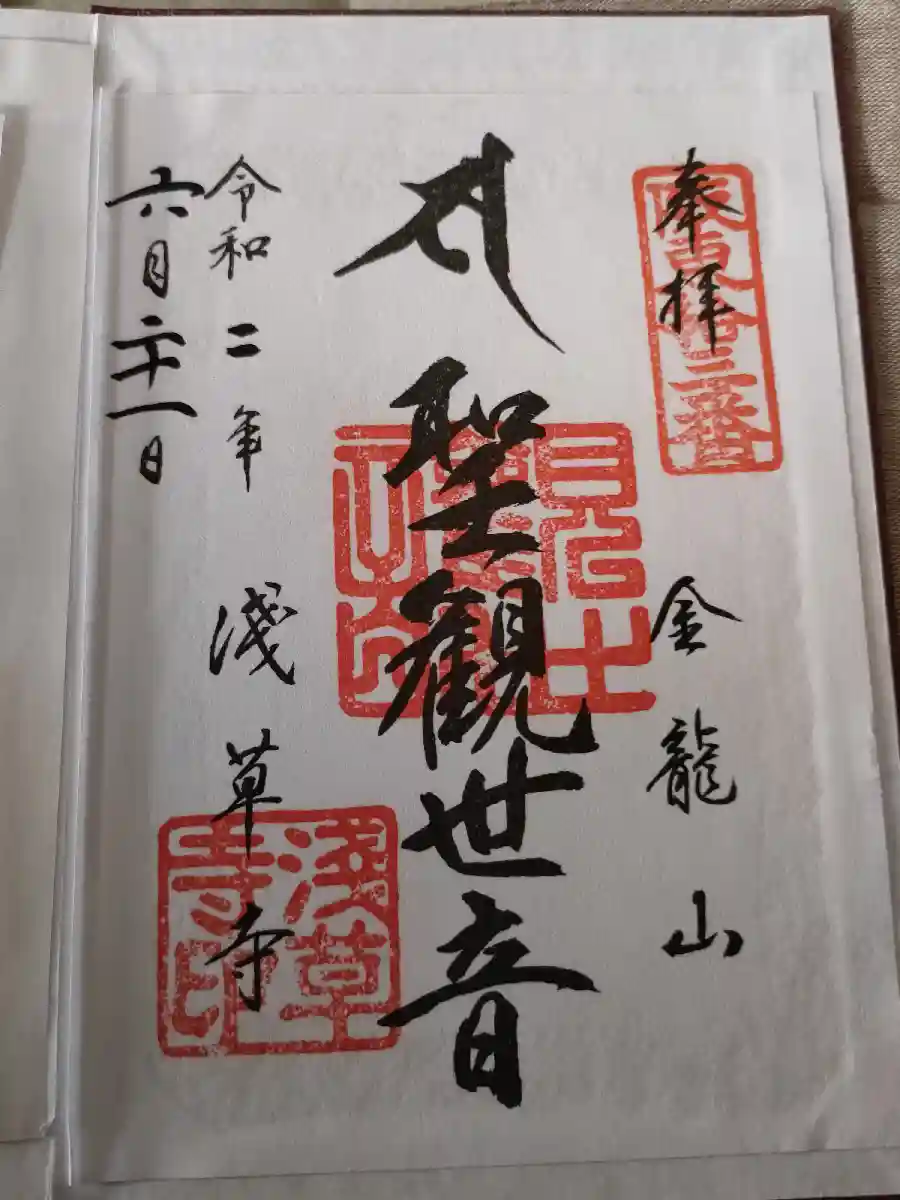 奉拝
坂東拾三番
金龍山
聖観世音
令和二年
六月二十一日
淺草寺
淺草寺印